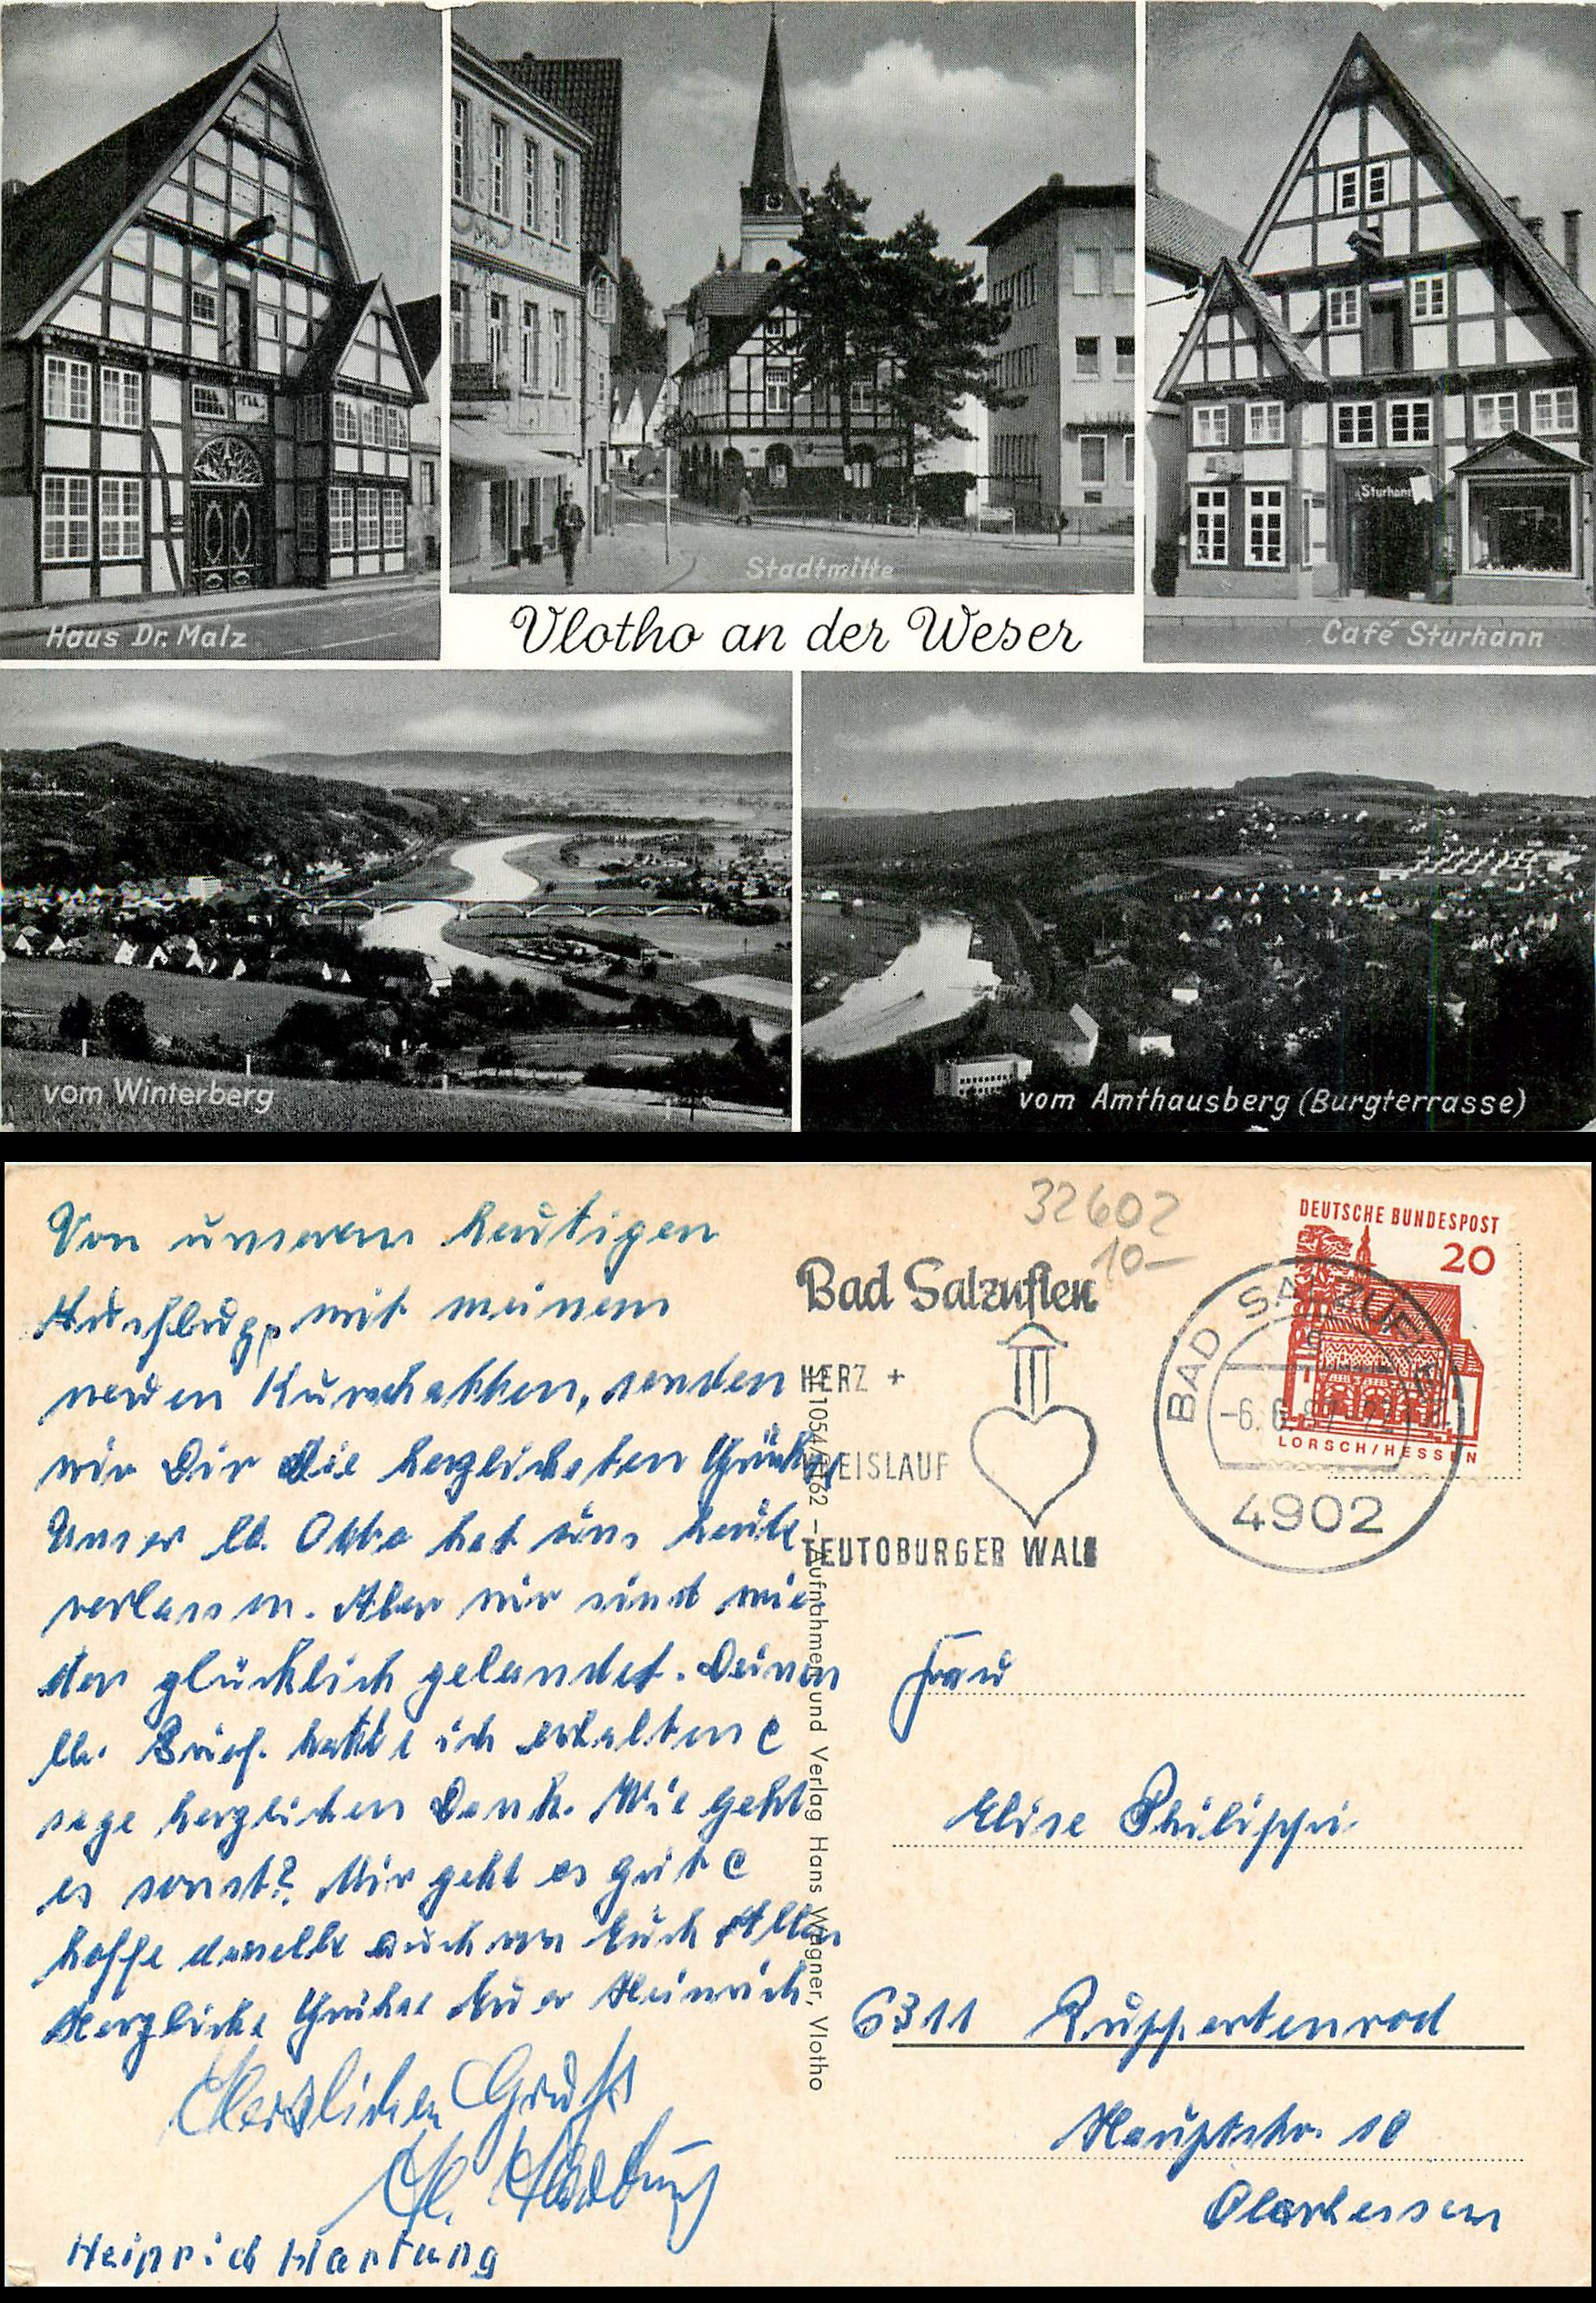 Haus Dr. Malz
Stadtmitte
Sturhann
Café Sturhann
Vlotho an der Weser
vom Winterberg
vom Amthausberg (Burgterrasse)
Von unserem heutigen
Ausflug, mit meinem
neuen Kurschatten, senden
wir Dir die herzlichsten Grüße
Unser lb. Otto hat uns heute
verlassen. Aber wir sind wie
der glücklich gelandet. Deinen
lb. Brief. hatte ich erhalten
sage herzlichen Dank. Wie geht
es sonst? Mir geht es gut
hoffe dasselbe auch von Euch Allen
Herzliche Grüße Euer Heinrich
Herzlichen Gruß
H. Hartung
Heinrich Hartung
32602
10-
Bad Salzuflen
HERZ +
KREISLAUF
TEUTOBURGER WALD
DEUTSCHE BUNDESPOST
20
LORSCH/HESSEN
BAD SALZUFLEN
-6.6.
4902
Aufnahmen und Verlag Hans Wagner, Vlotho
Frau
Elise Philippi
6311 Ruppertenrod
Hauptstr. 10
Oberhessen